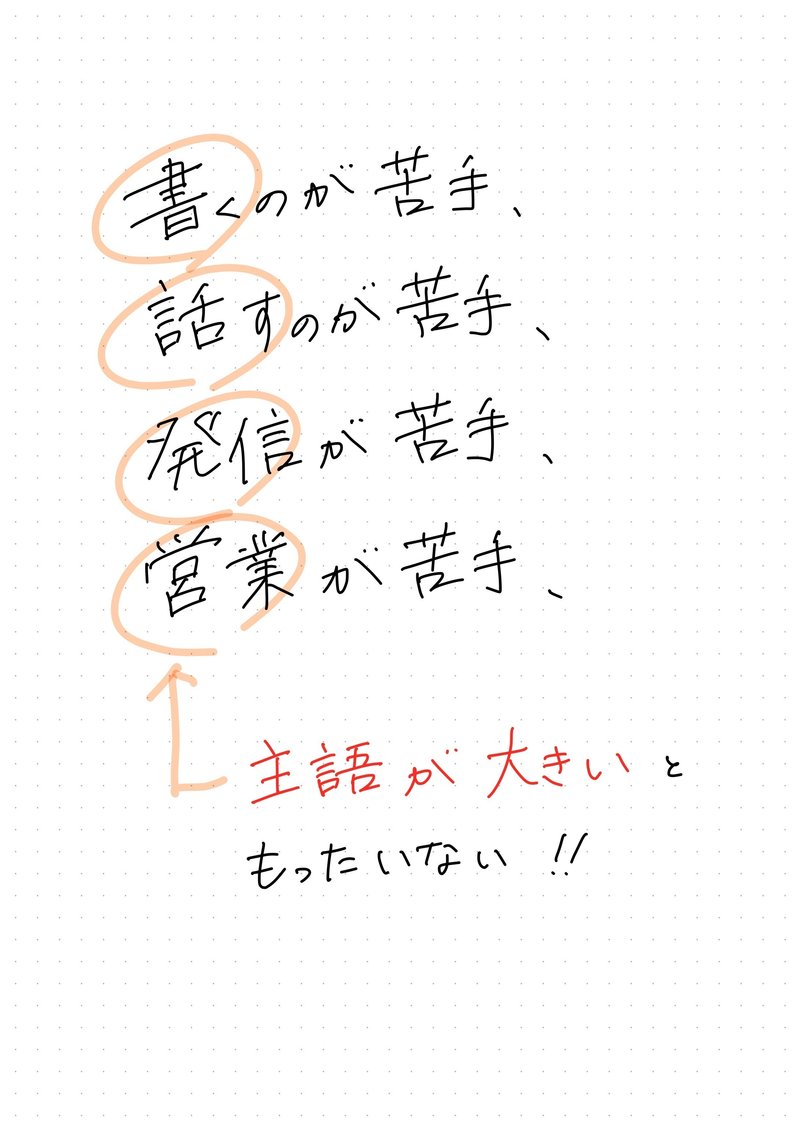 書くのが苦手、
話すのが苦手、
発信が苦手、
営業が苦手、
主語が大きいと
もったいない!!